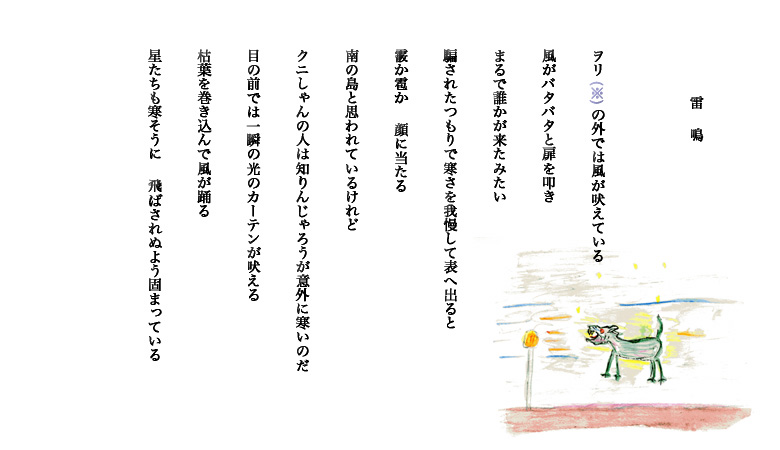 雷鳴
ヲリ(※)の外では風が吠えている
風がバタバタと扉を叩き
まるで誰かが来たみたい
騙されたつもりで寒さを我慢して表へ出ると
霰か雹か 顔に当たる
南の島と思われているけれど
クニしゃんの人は知りんじゃろうが意外に寒いのだ
目の前では一瞬の光のカーテンが吠える
枯葉を巻き込んで風が踊る
星たちも寒そうに 飛ばされぬよう固まっている